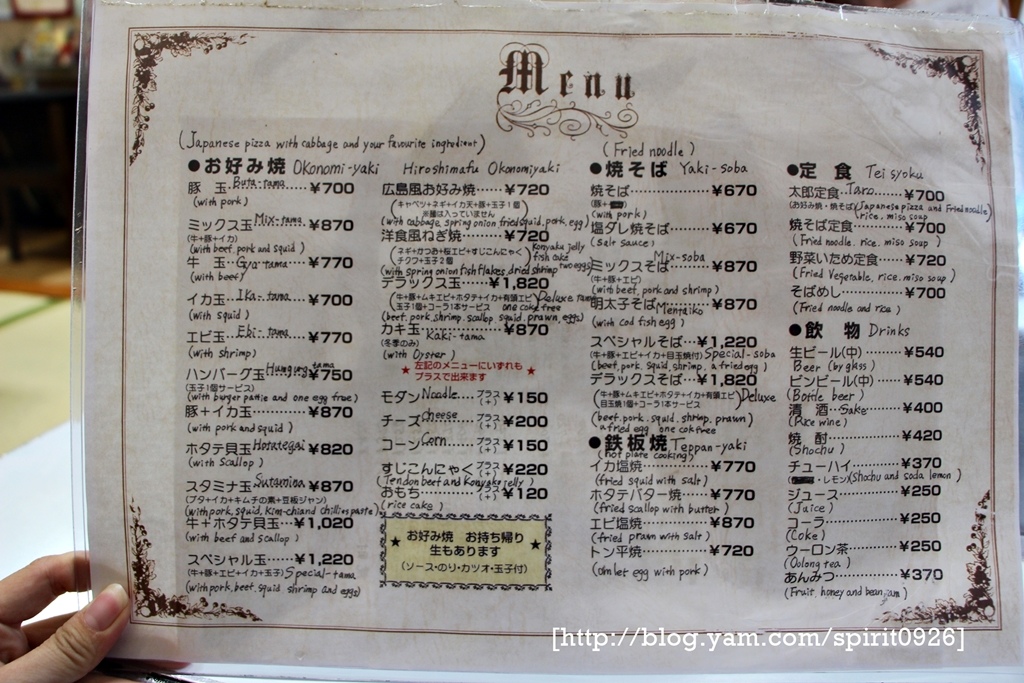 Menu
(Japanese pizza with cabbage and your favourite ingredient)
●お好み焼 Okonomi-yaki
豚 玉 Buta-tama ¥700
(with pork)
ミックス玉 Mix-tama ¥870
(牛+豚+イカ)
(with beef, pork and squid)
牛 玉 Gyu-tama ¥770
(with beef)
イカ玉 Ika-tama ¥700
(with squid)
エビ玉 Ebi-tama ¥770
(with shrimp)
ハンバーグ玉 ¥750
(玉子1個サービス)
(with burger pattie and one egg free)
豚+イカ玉 ¥870
(with pork and squid)
ホタテ貝玉 Hotategai ¥820
(with Scallop)
スタミナ玉 Sutamina ¥870
(ブタ+イカ+キムチの素+豆板ジャン)
(with pork, squid, Kim-chi and chillies paste)
牛+ホタテ貝玉 ¥1,020
(with beef and scallop)
スペシャル玉 ¥1,220
(牛+豚+エビ+イカ+玉子) Special-tama
(with pork, beef, squid, shrimp and eggs)
Hiroshimafu Okonomiyaki
広島風お好み焼 ¥720
(キャベツ+ネギ+イカ天+豚+玉子1個
※麺は入っていません)
(with cabbage, spring onion fried squid, pork, egg)
洋食風ねぎ焼 ¥720
(ネギ+かつお+桜エビ+すじこんにゃく
チクワ+玉子2個) Konyaku jelly fish cake two eggs
(with spring onion fish flakes, dried shrimp
デラックス玉 ¥1,820
(牛+豚+ムキエビ+ホタテ+イカ+有頭エビ
玉子1個+コーラ1本サービス one coke free) Deluxe tama
(beef, pork, shrimp, scallop squid, prawn, eggs)
カキ玉 Kaki-tama ¥870
(冬季のみ)
(with Oyster)
★ 左記のメニューにいずれも
プラスで出来ます ★
モダン Noodle プラス(+) ¥150
チーズ Cheese プラス(+) ¥200
コーン Corn プラス(+) ¥150
すじこんにゃく プラス(+) ¥220
(Tendon beef and Konyaku jelly)
おもち プラス(+) ¥120
(rice cake)
★ お好み焼 お持ち帰り ★
生もあります
(ソース・のり・カツオ・玉子付)
(Fried noodle)
●焼そば Yaki-soba
焼そば ¥670
(with pork)
塩ダレ焼そば ¥670
(Salt sauce)
ミックスそば Mix-soba ¥870
(牛+豚+エビ)
(with beef, pork and shrimp)
明太子そば Mentaiko ¥870
(with cod fish egg)
スペシャルそば ¥1,220
(牛+豚+エビ+イカ+目玉焼付) Special-soba
(beef, pork, squid, shrimp, a fried egg)
デラックスそば ¥1,820
(牛+豚+ムキエビ+ホタテ+イカ+有頭エビ
目玉焼1個+コーラ1本サービス) Deluxe
(beef, pork, squid, shrimp, prawn)
a fried egg one coke free
●鉄板焼 Teppan-yaki
(hot plate cooking)
イカ塩焼 ¥770
(fried squid with salt)
ホタテバター焼 ¥770
(fried scallop with butter)
エビ塩焼 ¥870
(fried prawn with salt)
トン平焼 ¥720
(omlet egg with pork)
●定 食 Teisyoku
太郎定食 Taro ¥700
(お好み焼・焼そば) (Japanese pizza and Fried noodle)
rice, miso soup
焼そば定食 ¥700
(Fried noodle, rice, miso soup)
野菜いため定食 ¥720
(Fried Vegetable, rice, miso soup)
そばめし ¥700
(Fried noodle and rice)
●飲 物 Drinks
生ビール(中) ¥540
Beer (by glass)
ビンビール(中) ¥540
(Bottle beer)
清 酒 Sake ¥400
(Rice wine)
焼 酎 ¥420
(Shochu)
チューハイ ¥370
・レモン) (Shochu and soda lemon)
ジュース ¥250
(Juice)
コーラ ¥250
(Coke)
ウーロン茶 ¥250
(Oolong tea)
あんみつ ¥370
(Fruit, honey and bean jam)
[http://blog.yam.com/spirit0926]